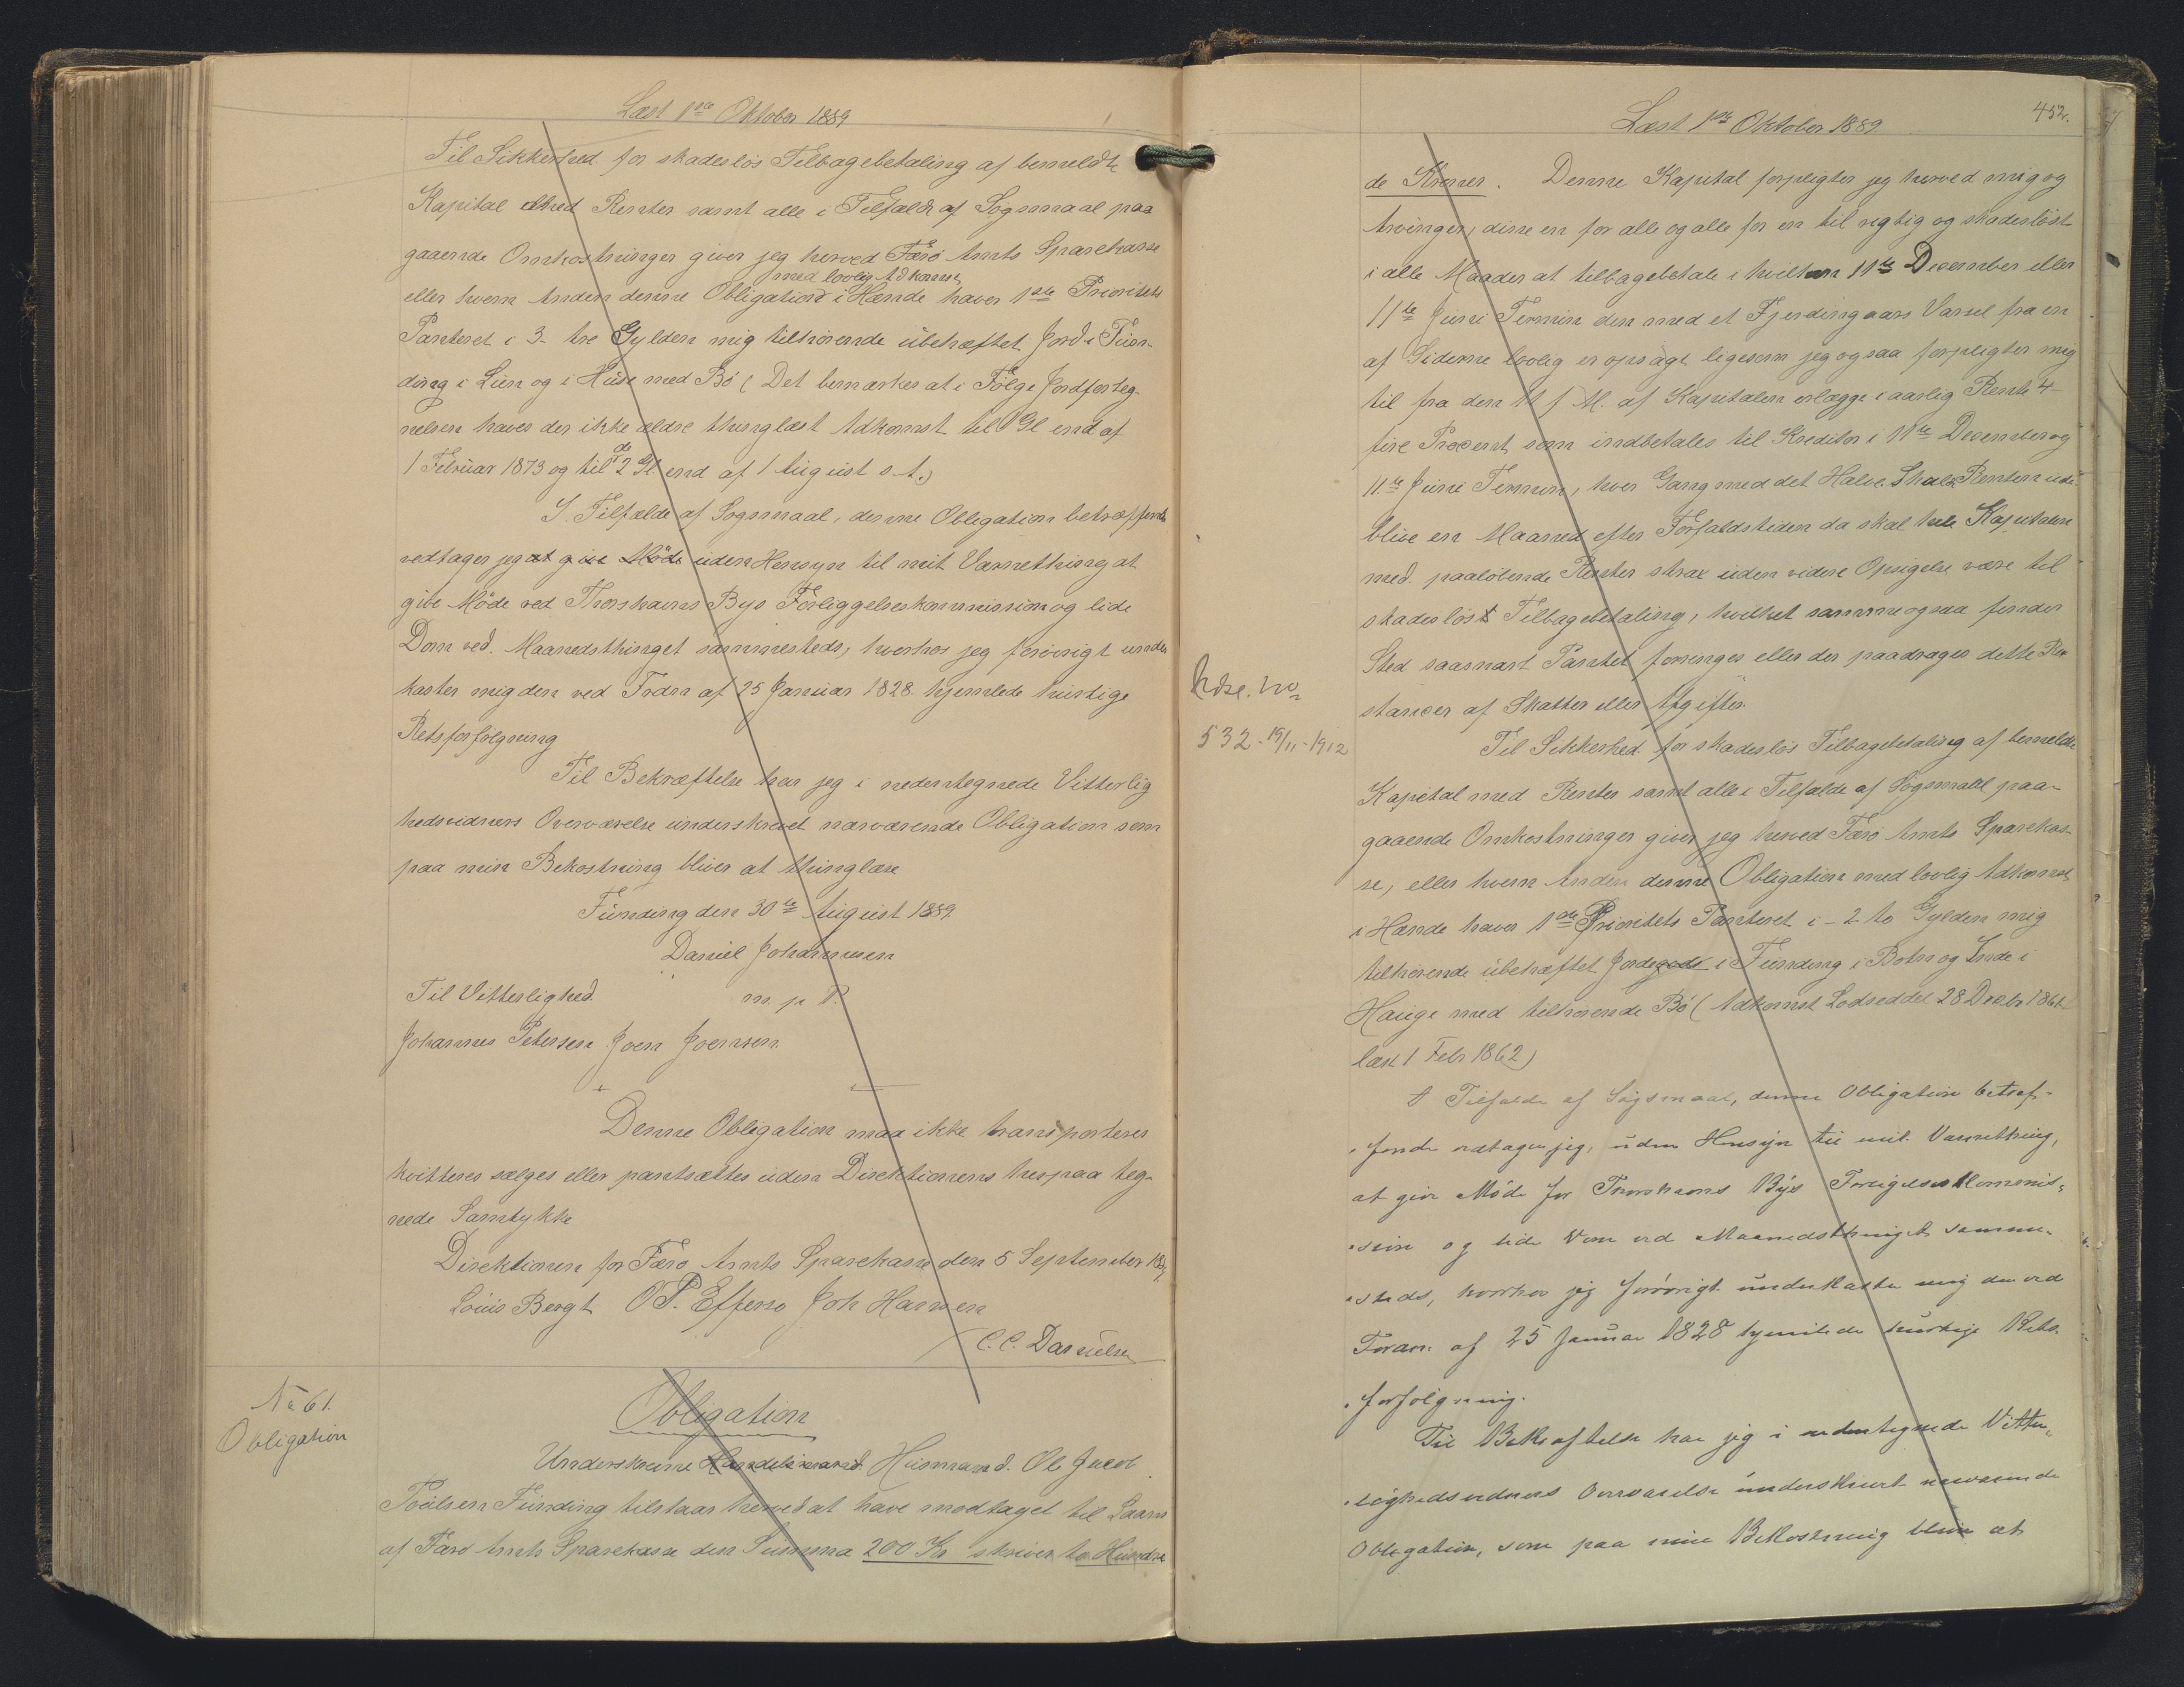 Læst 1ste Oktober 1889
Til Sikkerhed for skadeslös Tilbagebetaling af bemeldte
Kapital med Renter samt alle i Tilfælde af Sögsmaal paa
gaaende Omkostninger giver jeg herved Færö Amts Sparekasse
med lovlig Adkomst
eller hvem Anden denne Obligation i Hænde haver 1ste Prioritets
Panteret i 3 - tre Gylden mig tilhörende übehæftet Jord i Fün-
ding i Lien og i Hüse med Bö (Det bemærkes at i Fölge Jordforteg-
nelsen haves der ikke ældre thinglæst Adkomst til 1 Gl end af
1 Februar 1873 og til de 2 Gl end af 1 August s. A.)
I Tilfælde af Sögsmaal, denne Obligation betræffende
vedtager jeg at give Möde uden Hensyn til mit Værnething at
give Möde ved Thorshavns Byes Forliggelseskommission og lide
Dom ved Maanedsthinget sammesteds, hvorhos jeg forövrigt under
kaster mig den ved Frdn af 25 Januar 1828 hjemlede hurtige
Retsforfölgning
Til Bekræftelse har jeg i nedentegnede Vitterlig
hedsvidners Overværelse underskrevet nærværende Obligation som
paa min Bekostning bliver at thinglæse
Fünding den 30te August 1889
Daniel Johannesen
Til Vitterlighed. m. p. P.
Johannes Petersen Joen Joensen
Denne Obligation maa ikke transporteres
kvitteres sælges eller pantsættes uden Direktionens herpaa teg-
nede Samtykke
Direktionen for Færö Amts Sparekasse den 5 September 1889
Louis Bergh O P. Effersö Joh Hansen
C. C. Danielsen
No 61.
Obligation
Obligation
Underskrevne Handelsmand Husmand Ole Jacob
Poulsen Fünding tilstaar herved at have modtaget til Laans
af Færö Amts Sparekasse den Summa 200 Kr skriver to Hundre
Læst 1ste Oktober 1889
452.
de Kroner. Denne Kapital forpligter jeg herved mig og
Arvinger, disse en for alle og alle for en til rigtig og skadeslöst
i alle Maader at tilbagebetale i hvilken 11te December eller
11te Juni Termin den med et Fjerdingaars Varsel fra en
af Siderne lovlig er opsagt ligesom jeg ogsaa forpligter mig
til fra den 11 f M. af Kapitalen erlægge i aarlig Rente 4-
fire Procent som indbetales til Kreditor i 11te December og
11te Juni Termin, hver Gang med det Halve. Skulde Renten ude-
blive en Maaned efter Forfaldstiden da skal hele Kapitalen
med paalöbende Renter strax uden videre Opsigelse være til
skadeslös Tilbagebetaling, hvilket samme ogsaa finder
Sted saasnart Pantet forringes eller der paadrages dette Re-
stancer af Skatter eller Afgifter.
532 - 19/11 - 1912
Til Sikkerhed for skadeslös Tilbagebetaling af bemeldte
Kapital med Renter samt alle i Tilfælde af Sögsmaal paa-
gaaende Omkostninger giver jeg herved Færö Amts Sparekas-
se, eller hvem Anden denne Obligation med lovlig Adkomst
i Hænde haver 1ste Prioritets Panteret i - 2 to Gylden mig
tilhörende übehæftet Jordegods i Fünding i Botn og Inde i
Hauge med tilhörende Bö (Adkomst Lodseddel 28 Decbr 1861
læst 1 Febr 1862)
I Tilfælde af Sögsmaal, denne Obligation betræf-
fende vedtager jeg, uden Hensyn til mit Værnething,
at give Möde for Thorshavns Byes Forligelses Kommis-
sion og lide Dom ved Maanedsthinget samme-
steds, hvorhos jeg forövrigt underkaster mig den ved
Fordn af 25 Januar 1828 hjemlede hurtige Rets-
forfölgning.
Til Bekræftelse har jeg i nedentegnede Vitter-
lighedsvidners Overværelse underskrevet nærværende
Obligation, som paa min Bekostning bliver at